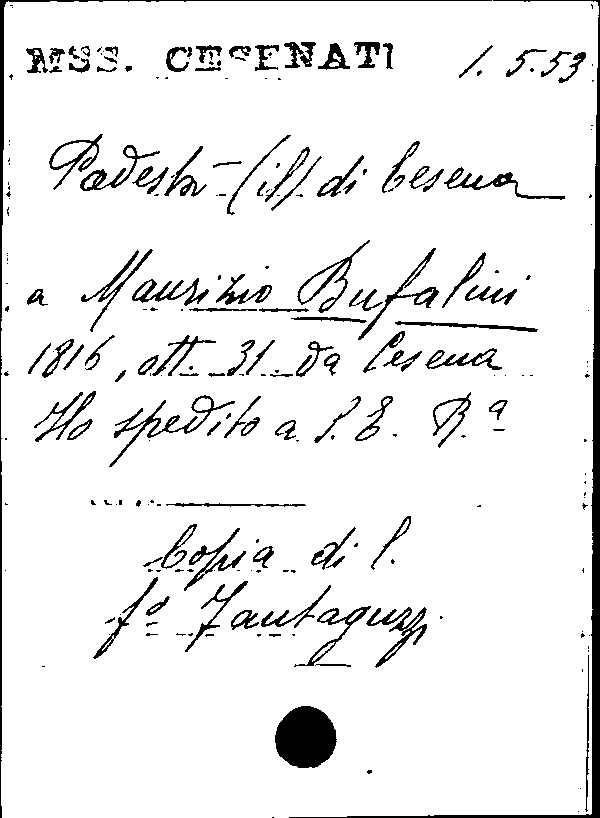 MSS. CESENATI 1.5.53
Podestà (il) di Cesena
a Maurizio Bufalini
1816, ott. 31. da Cesena
Ho spedito a S. E. R.ª
Copia di l.
fº Fantaguzzi